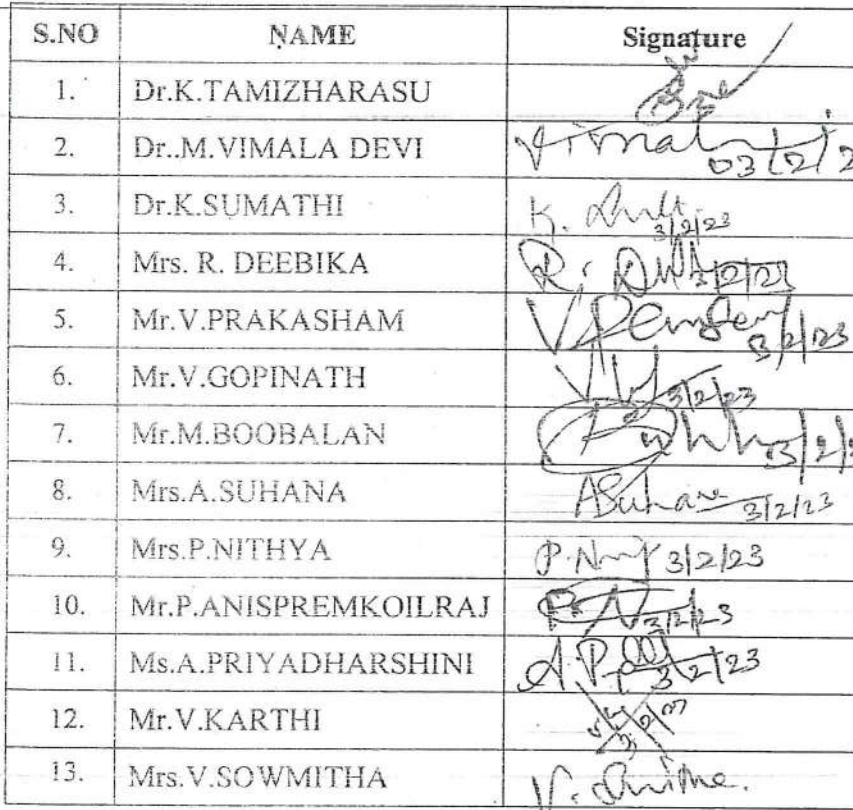 S.NO NAME Signature
1. Dr.K.TAMIZHARASU
2. Dr..M.VIMALA DEVI Vimala 03/2/2
3. Dr.K.SUMATHI K. 3/2/23
4. Mrs. R. DEEBIKA R. 3/2/23
5. Mr.V.PRAKASHAM 3/2/23
6. Mr.V.GOPINATH 3/2/23
7. Mr.M.BOOBALAN 3/2/2
8. Mrs.A.SUHANA ASuhana 3/2/23
9. Mrs.P.NITHYA 3/2/23
10. Mr.P.ANISPREMKOILRAJ 3/2/23
11. Ms.A.PRIYADHARSHINI 3/2/23
12. Mr.V.KARTHI
13. Mrs.V.SOWMITHA V.